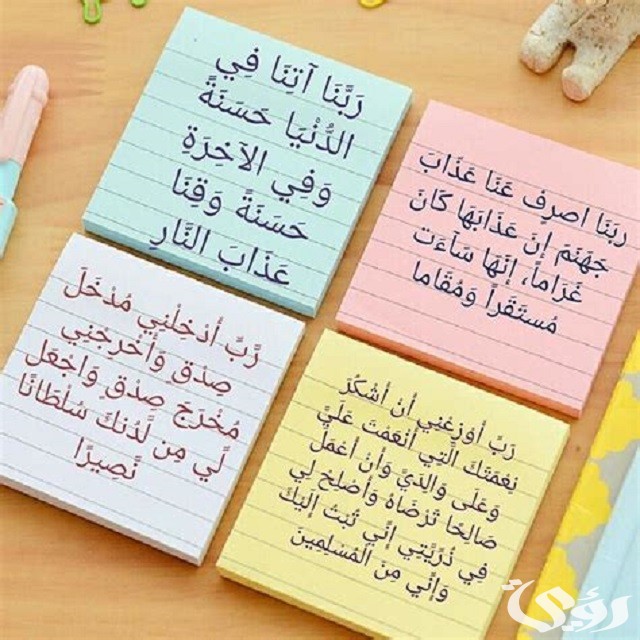 رَبَّنَا آتِنَا فِي
الدُّنْيَا حَسَنَةً
وَفِي الآخِرَةِ
حَسَنَةً وَقِنَا
عَذَابَ النَّارِ
ربَنَا اصرِف عَنَا عَذَابَ
جَهَنَمَ إنَ عَذَابَهَا كَانَ
غَرَاماً، إنَهَا سَآءَت
مُستَقَراً وَمُقَاما
رَّبِّ أَدْخِلْنِي مُدْخَلَ
صِدْقٍ وَأَخْرِجْنِي
مُخْرَجَ صِدْقٍ وَاجْعَل
لِّي مِن لَّدُنكَ سُلْطَانًا
نَّصِيرًا
رَبِّ أَوْزِعْنِي أَنْ أَشْكُرَ
نِعْمَتَكَ الَّتِي أَنْعَمْتَ عَلَيَّ
وَعَلَى وَالِدَيَّ وَأَنْ أَعْمَلَ
صَالِحًا تَرْضَاهُ وَأَصْلِحْ لِي
فِي ذُرِّيَّتِي إِنِّي تُبْتُ إِلَيْكَ
وَإِنِّي مِنَ الْمُسْلِمِينَ
رؤية